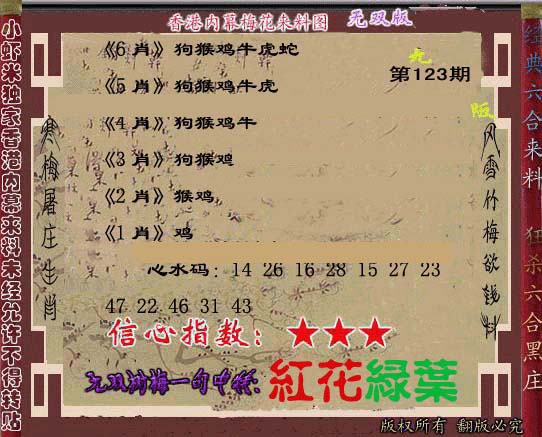 香港内幕梅花来料图 无双版
小虾米独家香港内幕来料未经允许不得转贴
经典六合来料 狂杀六合黑庄
第123期
寒梅屠庄生肖
风雪竹梅欲钱料
《6 肖》狗猴鸡牛虎蛇
《5 肖》狗猴鸡牛虎
《4 肖》狗猴鸡牛
《3 肖》狗猴鸡
《2 肖》猴鸡
《1 肖》鸡
心水码：14 26 16 28 15 27 23
47 22 46 31 43
信心指数：★★★
紅花緑葉
版权所有 翻版必究